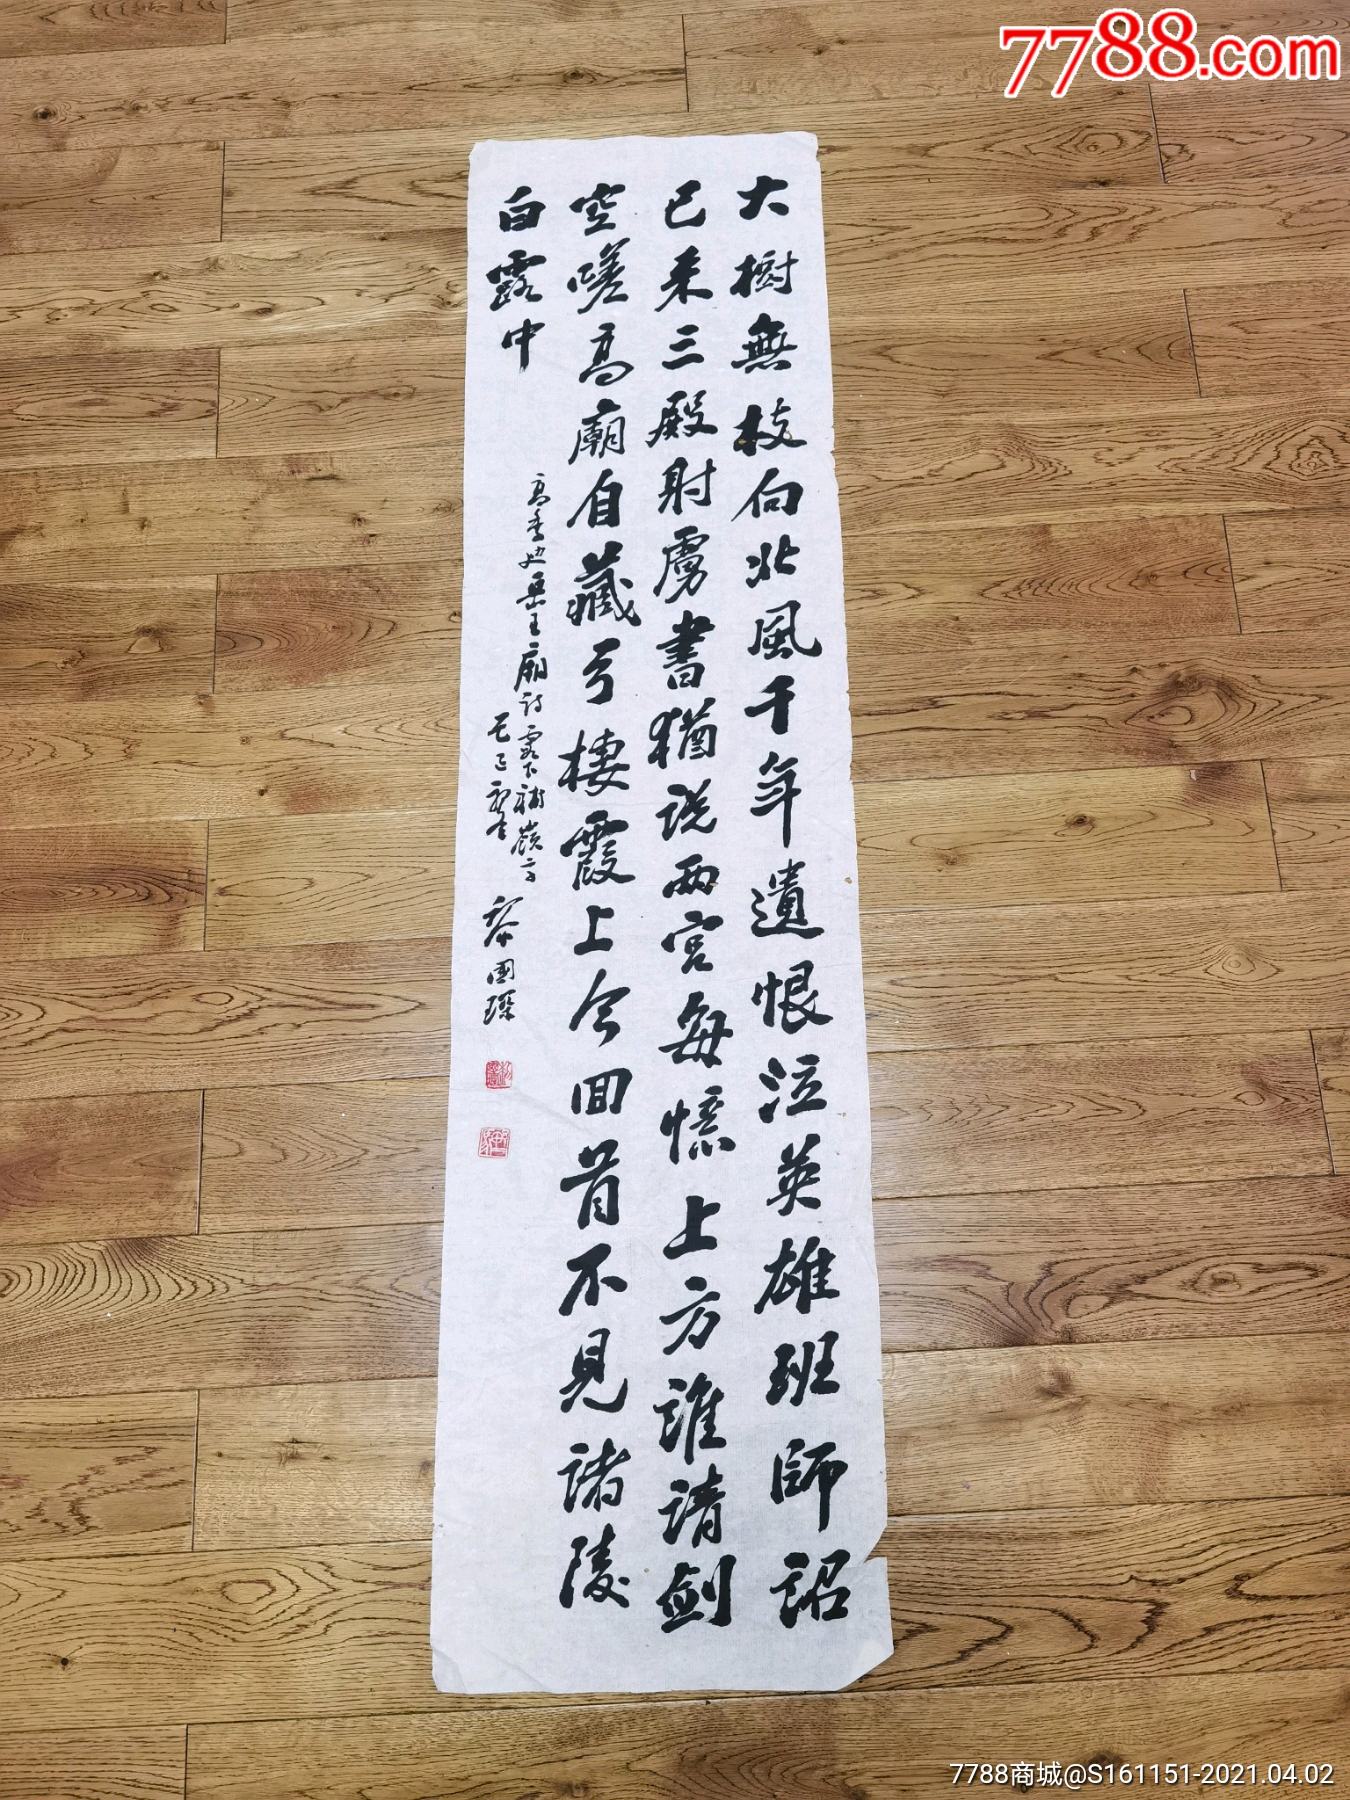 7788.com
大樹無枝向北風千年遺恨泣英雄班師詔
已来三殿射虜書猶説两宮每憶上方誰請劍
空嗟高廟自藏弓棲霞上今回首不見諸陵
白露中
高季迪岳王廟詩霞下補嶺字
國琛
7788商城@S161151-2021.04.02